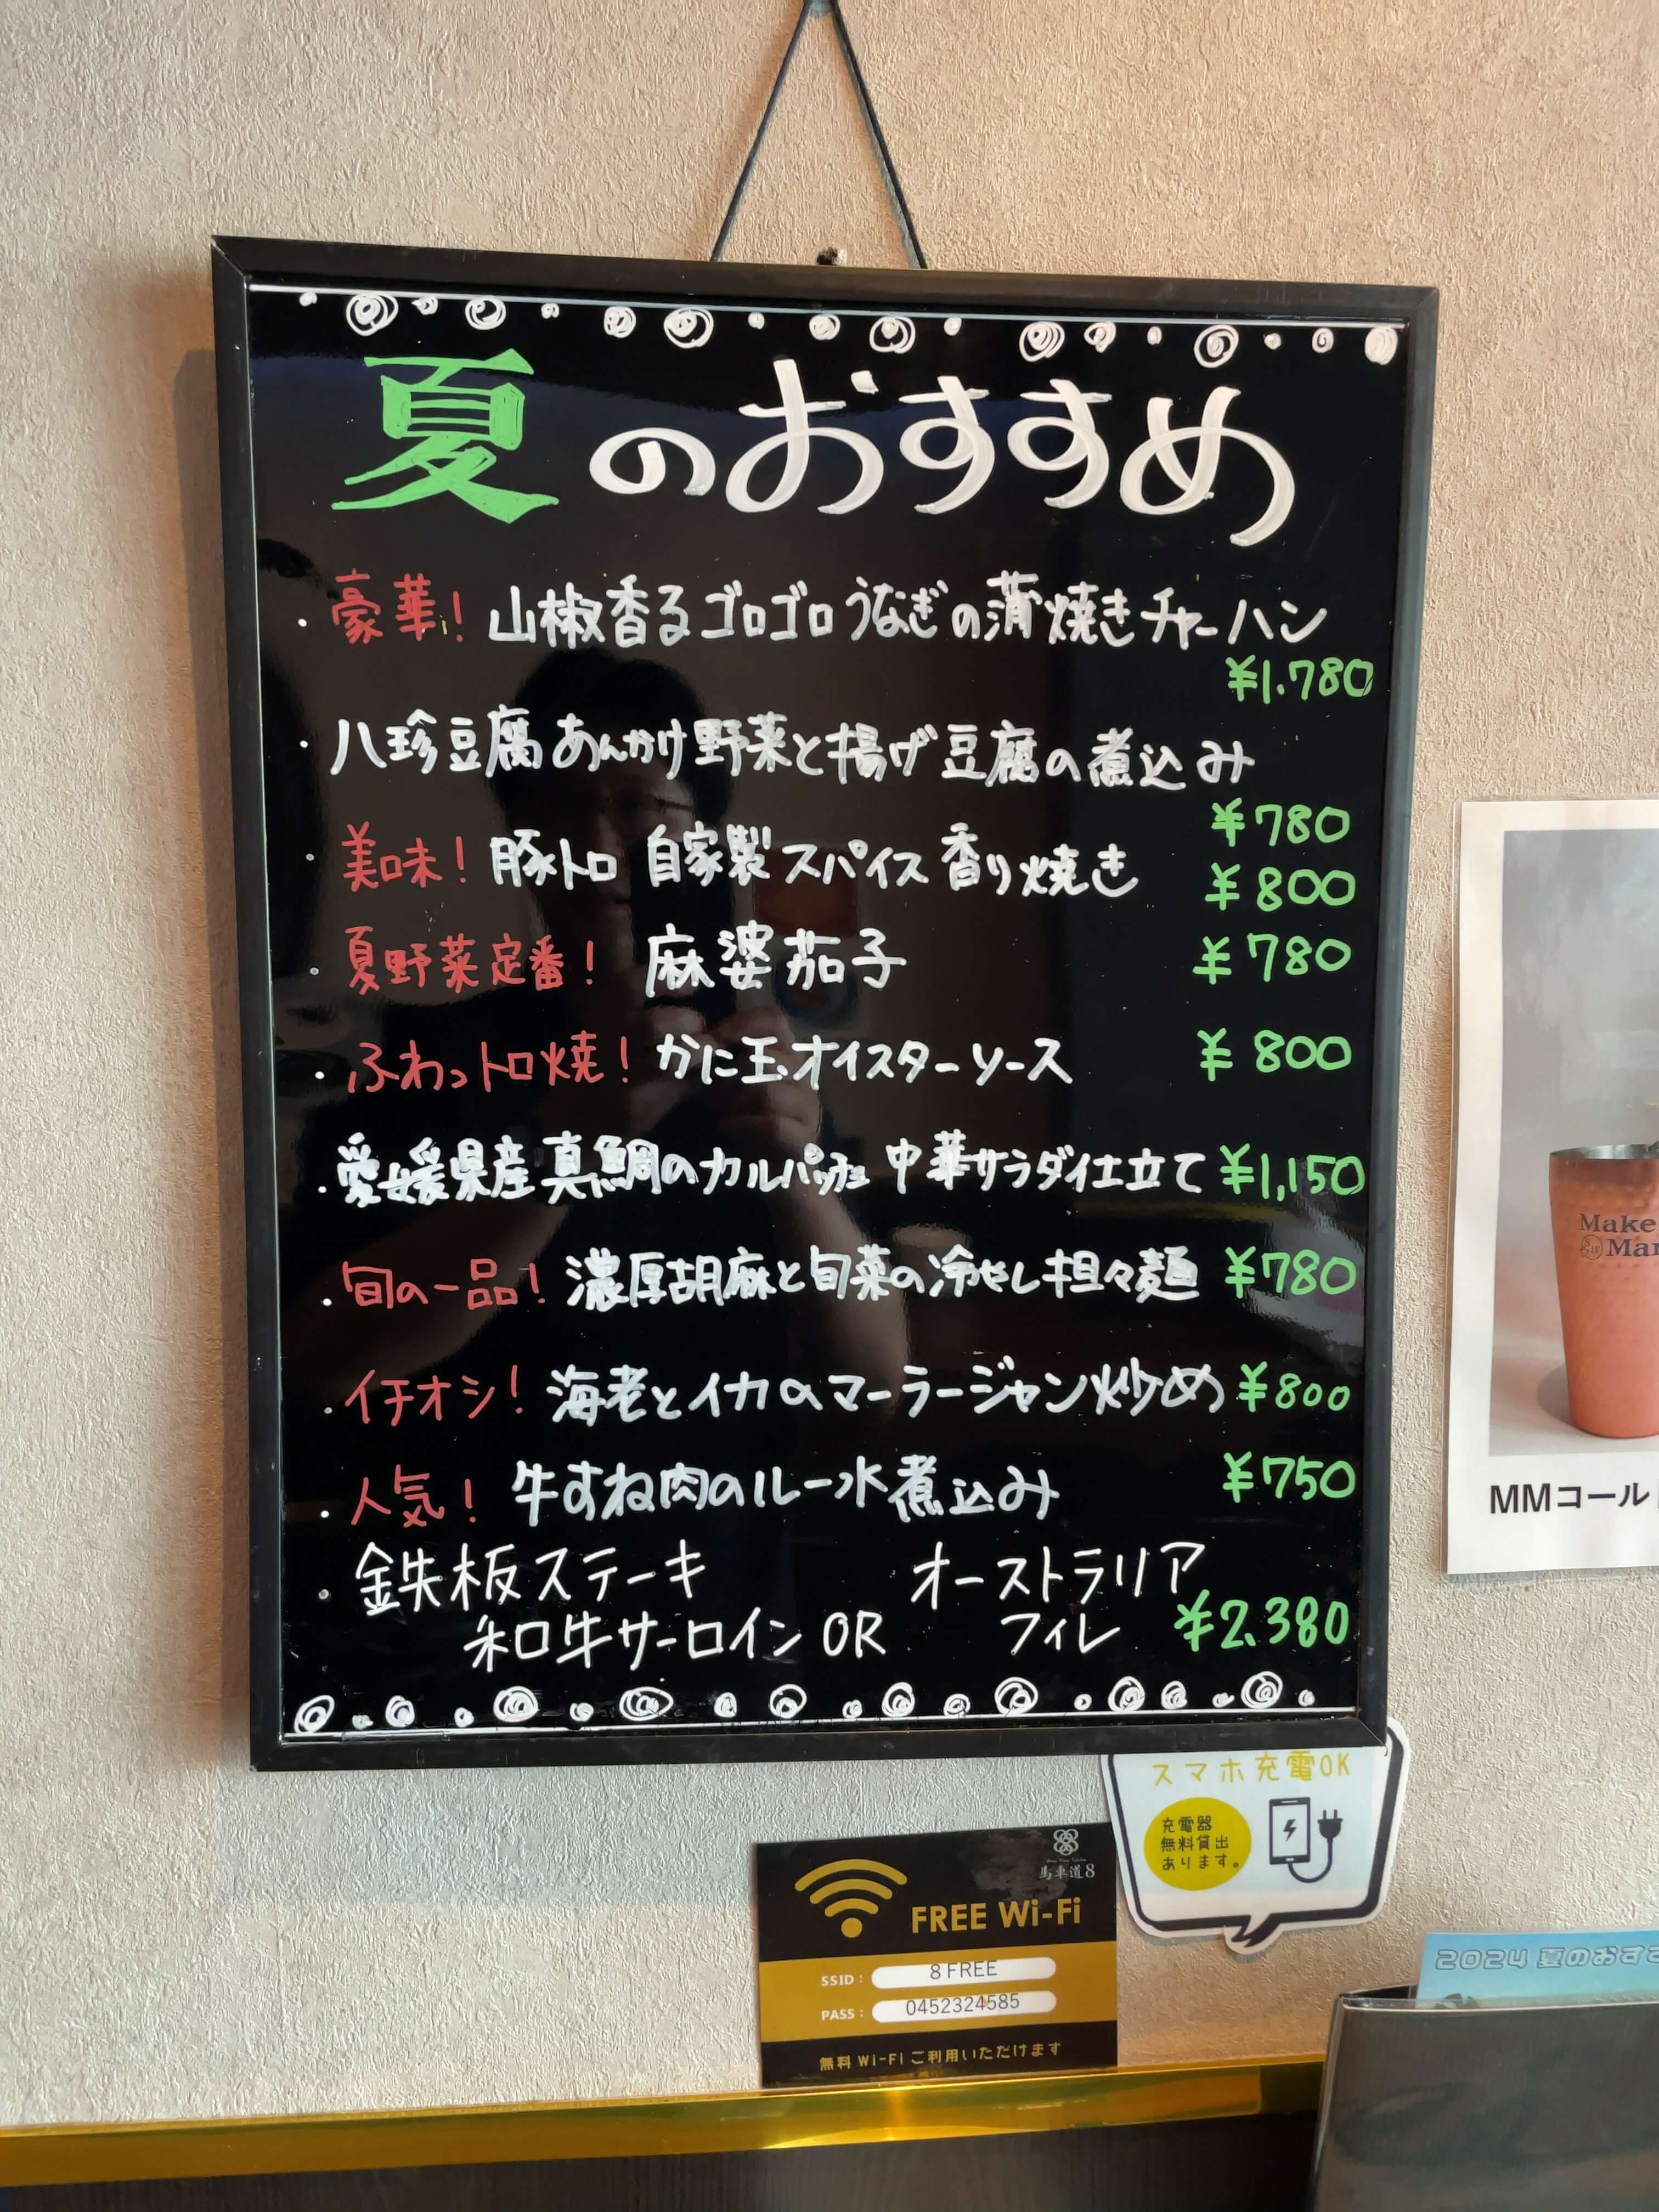 夏のおすすめ
・豪華! 山椒香るゴロゴロうなぎの蒲焼きチャーハン
¥1.780
・八珍豆腐あんかけ野菜と揚げ豆腐の煮込み
¥780
・美味! 豚トロ 自家製スパイス香り焼き ¥800
・夏野菜定番! 麻婆茄子 ¥780
・ふわっトロ焼! かに玉オイスターソース ¥800
・愛媛県産真鯛のカルパッチョ 中華サラダ仕立て ¥1,150
・旬の一品! 濃厚胡麻と旬菜の冷やし担々麺 ¥780
・イチオシ! 海老とイカのマーラージャン炒め ¥800
・人気! 牛すね肉のルー水煮込み ¥750
・鉄板ステーキ オーストラリア
和牛サーロイン OR フィレ ¥2.380
Make
Mar
MMコール
スマホ充電OK
充電器
無料貸出
あります。
馬車道8
FREE Wi-Fi
SSID: 8 FREE
PASS: 0452324585
無料 Wi-Fi ご利用いただけます
2024 夏のおす